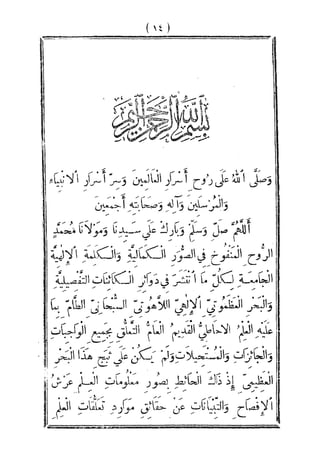 ( ١٤ )
بِسْمِ اللهِ الرَّحْمٰنِ الرَّحِيمِ
وَصَلَّى اللهُ عَلَى رُوحِ أَسْرَارِ الْعَالَمِينَ وَسِرِّ أَسْرَارِ الْأَنْبِيَاءِ
وَالْمُرْسَلِينَ وَآلِهِ وَصَحَابَتِهِ أَجْمَعِينَ
اَللّٰهُمَّ صَلِّ وَسَلِّمْ وَبَارِكْ عَلَى سَيِّدِنَا وَمَوْلَانَا مُحَمَّدٍ
الرُّوحِ الْمَنْفُوخِ فِي الصُّوَرِ الْكَمَالِيَّةِ وَالْكَلِمَةِ الْإِلٰهِيَّةِ
الْجَامِعَةِ لِكُلِّ مَا انْتَشَرَ فِي دَوَائِرِ الْكَائِنَاتِ التَّفْصِيلِيَّةِ
وَالْبَحْرِ الْعَظَمُوتِيِّ الْإِلٰهِيِّ اللَّاهُوتِيِّ السُّبْحَانِيِّ الطَّامِّ بِمَا
عَلَيْهِ الْعِلْمُ الْإِحَاطِيُّ الْقَدِيمُ الْعَامُّ التَّعَلُّقِ بِجَمِيعِ الْوَاجِبَاتِ
وَالْجَائِزَاتِ وَالْمُسْتَحِيلَاتِ وَلَمْ يَكُنْ عَلَى ثَبَجِ هَذَا الْبَحْرِ
الْعَظِيمِيِّ إِذْ ذَاكَ الْحَائِطِ بِصُوَرِ مَعْلُومَاتِ الْعِلْمِ عَرْشُ
الْإِفْصَاحِ وَالتِّبْيَانَاتِ عَنْ حَقَائِقِ مَوَارِدِ تَعَلُّقَاتِ الْعِلْمِ